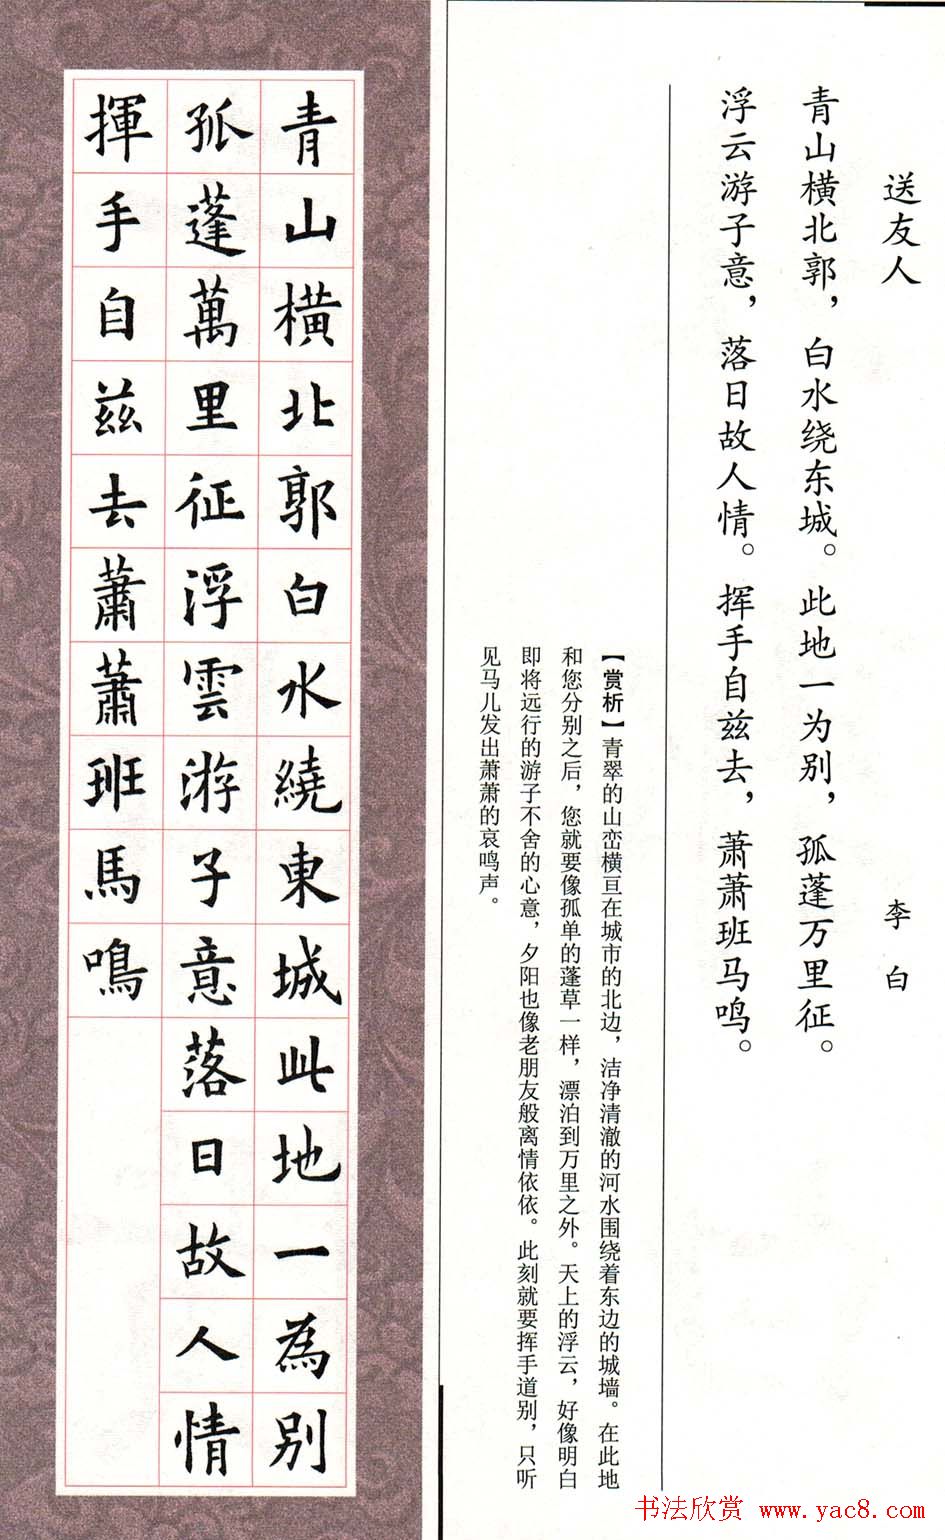 送友人
李白
青山横北郭，白水绕东城。此地一为别，孤蓬万里征。
浮云游子意，落日故人情。挥手自兹去，萧萧班马鸣。
【赏析】青翠的山峦横亘在城市的北边，洁净清澈的河水围绕着东边的城墙。在此地
和您分别之后，您就要像孤单的蓬草一样，漂泊到万里之外。天上的浮云，好像明白
即将远行的游子不舍的心意，夕阳也像老朋友般离情依依。此刻就要挥手道别，只听
见马儿发出萧萧的哀鸣声。
青山橫北郭白水繞東城此地一為別
孤蓬萬里征浮雲游子意落日故人情
揮手自兹去蕭蕭班馬鳴
书法欣赏 www.yac8.com